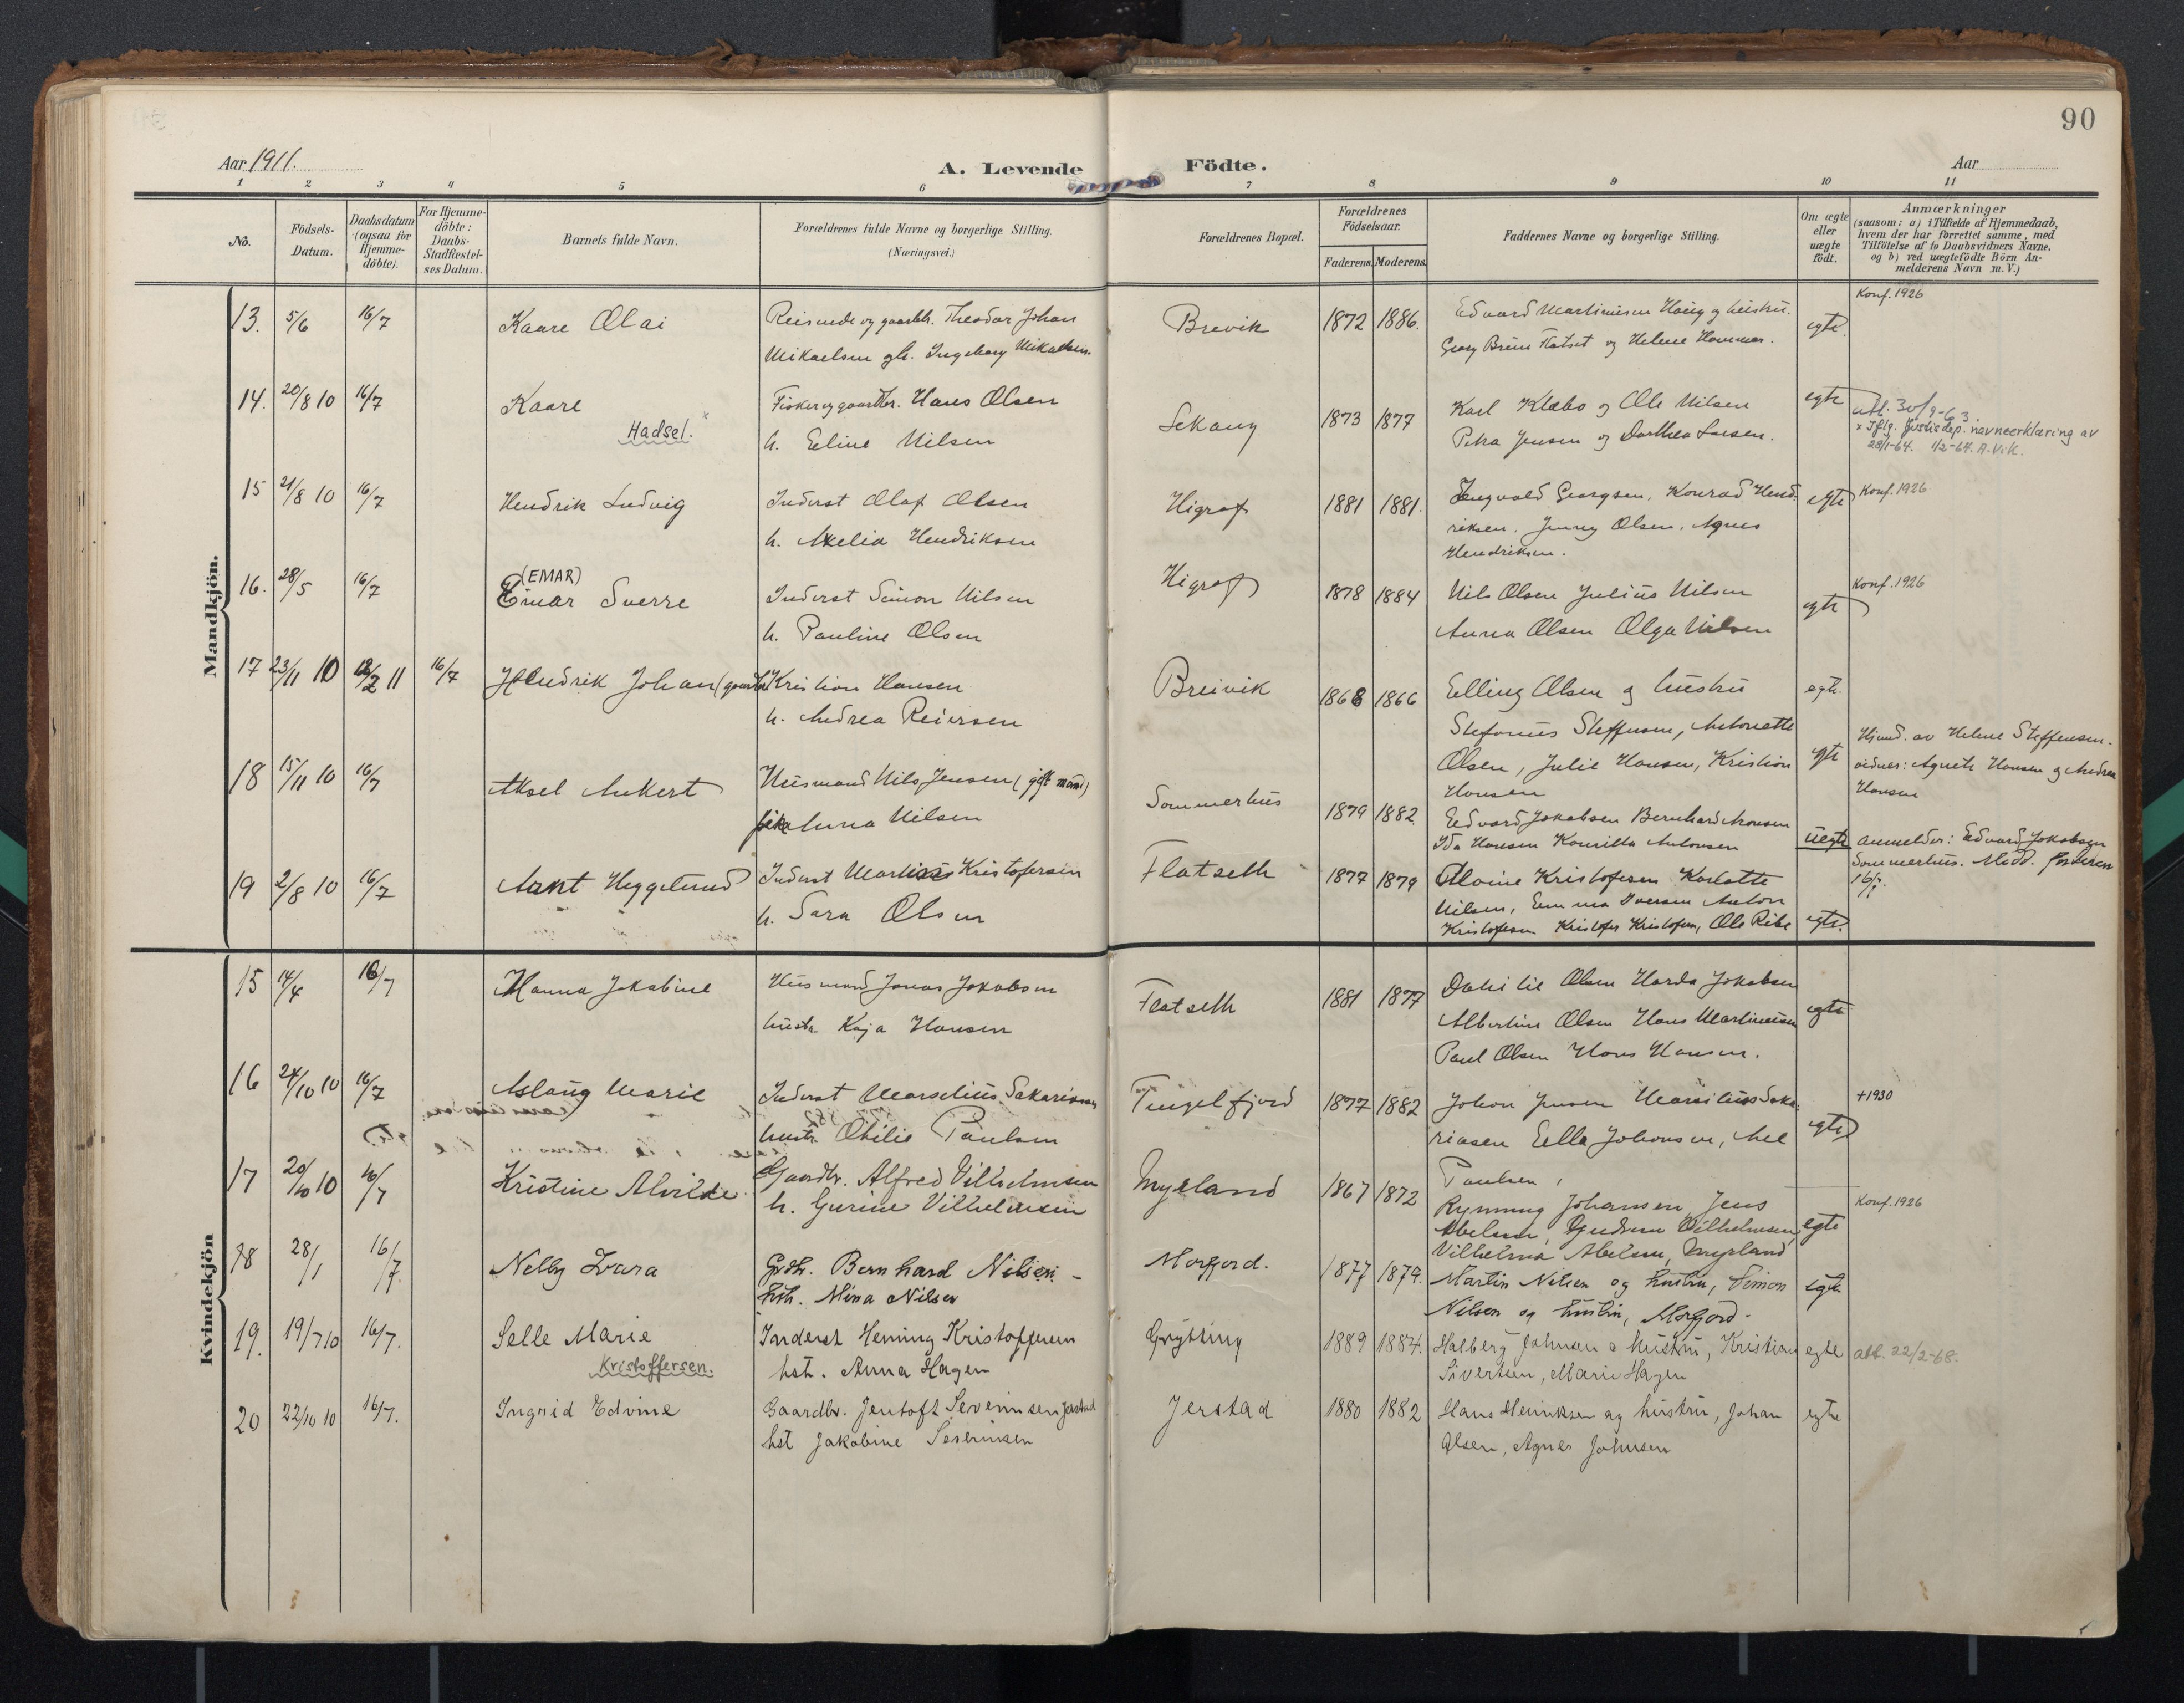 90
Aar 1911.
A. Levende Födte.
Aar
1 2 3 4 5 6 7 8 9 10 11
No.
Födsels-Datum.
Daabsdatum (ogsaa for Hjemme-döbte).
For Hjemme-döbte: Daabs-Stadfestel-ses Datum.
Barnets fulde Navn.
Forældrenes fulde Navne og borgerlige Stilling. (Næringsvei.)
Forældrenes Bopæl.
Forældrenes Födselsaar.
Faderens. Moderens.
Faddernes Navne og borgerlige Stilling.
Om ægte eller uægte födt.
Anmærkninger
(saasom: a) i Tilfælde af Hjemmedaab,
hvem der har forrettet samme, med
Tilföielse af to Daabsvidners Navne.
og b) ved uægtefödte Börn An-
melderens Navn m. V.)
Mandkjön.
13. 5/6 16/7 Kaare Olai Reisende og gaardbr. Theodor Johan Brevik 1872 1886. Edvard Martinusen Haug og hustru. egte. Konf. 1926
Mikaelsen g h. Ingeborg Mikaelsen. Georg Bruun Flatset og Helene Hammer.
14. 20/8 10 16/7 Kaare Fisker og gaardbr. Hans Olsen Sekang 1873 1877 Karl Klæbo og Ole Nilsen egte att. 30/9-63.
Hadsel. x h. Eeline Nilsen Petra Jensen og Dorthea Larsen. x Iflg. Justisdep. navneerklæring av
28/1-64. 1/2-64. A.Vik.
15 21/8 10 16/7 Hendrik Ludvig Inderst Olaf Olsen Higraf 1881 1881. Ingvald Georgsen, Konrad Hend- egte Konf. 1926
h. Amelia Hendriksen riksen. Jenny Olsen. Agnes
Hendriksen.
16. 28/5 16/7 (EMAR)
Emar Sverre Inderst Simon Nilsen Higraf 1878 1884 Nils Olsen Julius Nilsen egte Konf. 1926
h. Pauline Olsen Anna Olsen Olga Nilsen
17 23/11 10 12/2 11 16/7 Hendrik Johan (gaardbr Kristian Hansen Breivik 1868 1866 Elling Olsen og hustru egte.
h. Andrea Reiersen Stefanus Steffensen, Antonette Hjmd. av Helene Steffensen.
Olsen, Julie Hansen, Kristian vidner: Agnete Hansen og Andrea
Hansen Hansen
18 15/11 10 16/7 Aksel Ankert Husmand Nils Jensen (gift mand) Sommerhus 1879 1882. Edvard Jakobsen Bernhard egte
pike Anna Nilsen Ida Hansen Antonsen uegte anmelder: Edvard Jakobsen
Sommerhus. Medd.
16/7.
19 2/8 10 16/7 Arnt Heggelund Inderst Martinus Kristofersen Flatseth 1877 1879 Alvine Kristofersen Karlotte
h. Sara Olsen Nilsen, Emma Iversen Anton
Kristofersen Kristofer Kristofersen, Ole Ribe egte.
Kvindekjön
15 14/4 16/7 Hanna Jakobine Husmand Jonas Jakobsen Flatseth 1881 1877 Olsen Jakobsen egte
hustr. Kaja Hansen Albertine Olsen Hans Martinusen
Paul Olsen Hans Hansen.
16 24/10 10 16/7 Aslaug Marie Inderst Marselius Sakariasen Tingelfjord 1877 1882 Johan Jensen Marsilius Saka- egte +1930
hustr. Otilie Paulsen riasen Ella Johansen,
Paulsen,
17 20/10 10 16/7 Kristine Alvilde Gaardbr. Alfred Vilhelmsen Myrland 1867 1872 Rynning Johansen, Jens egte Konf. 1926
h. Gurine Vilhelmsen Abelsen, Gudrun Vilhelmsen
Vilhelma Abelsen, Myrland
18 28/1 16/7. Nelly Zvara Grdbr. Bernhard Nilsen - Morfjord. 1877 1879. Martin Nilsen og hustru, Simon egte
hstr. Mina Nilsen Nilsen og hustru, Morfjord.
19. 19/7 10 16/7. Selle Marie Inderst Heming Kristoffersen Grytting 1889 1884. Halberg Johnsen o hustru, Kristian egte att. 22/2-68.
Kristoffersen. hst. Anna Hagen Sivertsen, Marie Hagen
20 22/10 10 16/7. Ingrid Edvine Gaardbr. Jentoft Severinsen Jerstad Jerstad 1880 1882 Hans Henriksen og hustru, Johan egte
hst Jakobine Severinsen Olsen, Agnes Johnsen